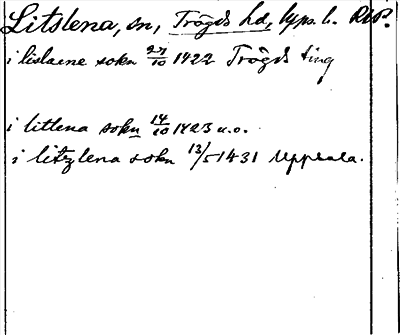 Litslena, sn, Trögds hd, Upps. l. RAP.
i lislaene sokn 27/10 1422 Trögds ting
i litlena sokn 14/10 1423 u.o.
i litzlena sokn 13/5 1431 Uppsala.